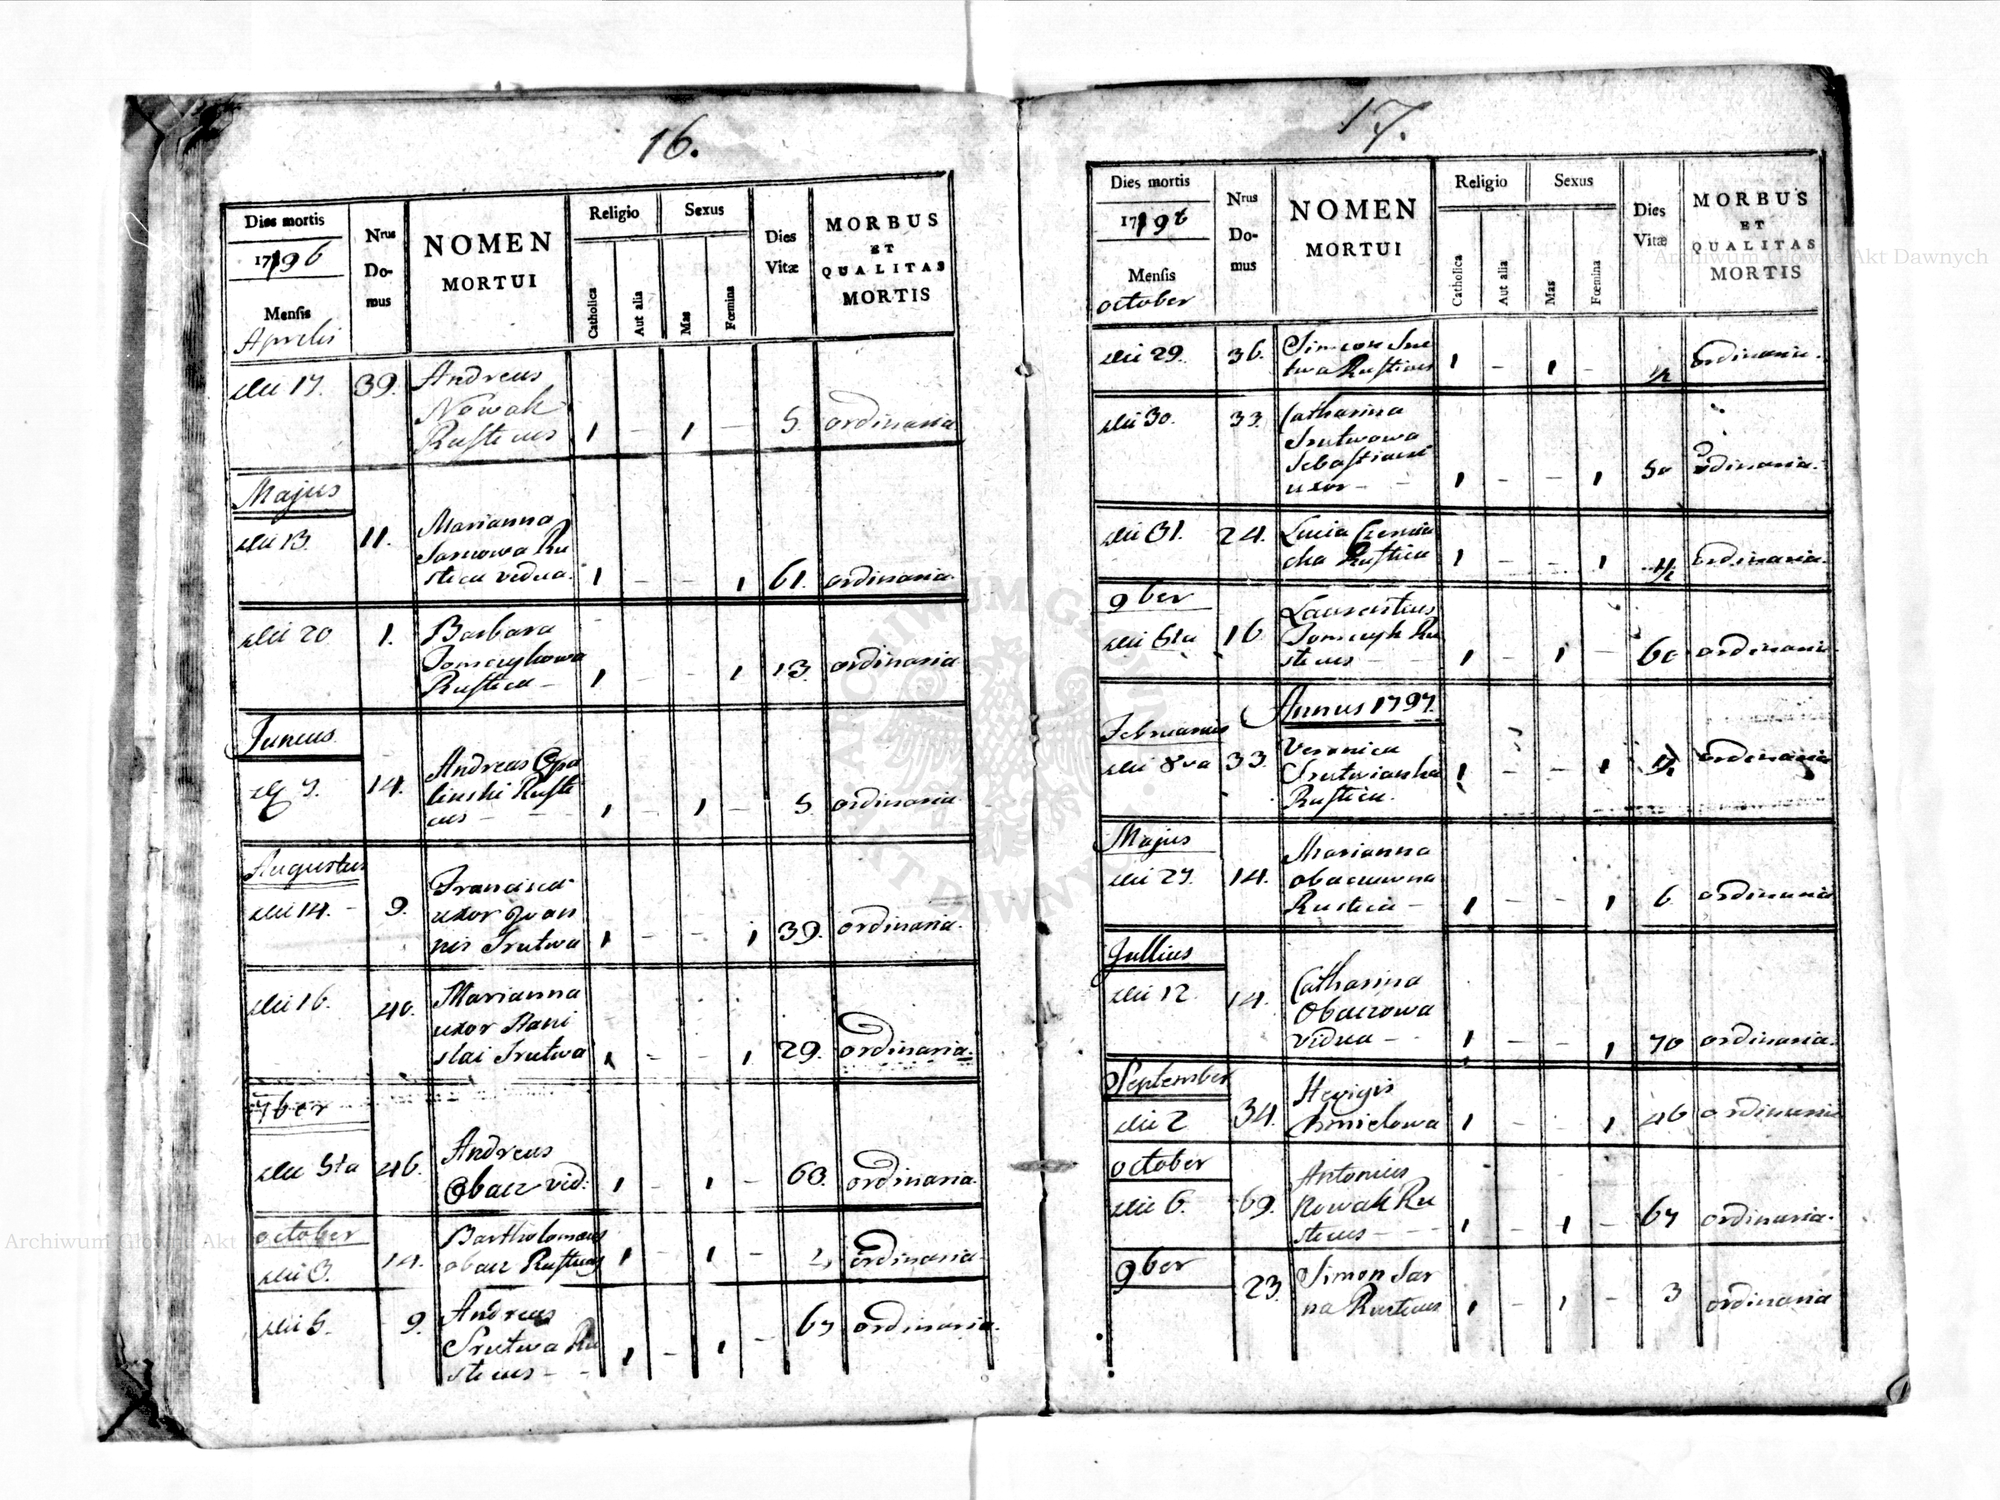 16.
Dies mortis
1796
Mensis
Aprilis
Nrus
Do-
mus
NOMEN
MORTUI
Religio
Catholica
Aut alia
Sexus
Mas
Fœmina
Dies
Vitæ
MORBUS
ET
QUALITAS
MORTIS
die 17. 39. Andreas
Nowak
Rusticus 1 - 1 - 5. ordinaria
Majus
die 13. 11. Marianna
Ru
stica vidua. 1 - - 1 61. ordinaria.
die 20 1. Barbara
Tomczykowa
Rustica - 1 - - 1 13. ordinaria
Junius.
14. Andreas Opa
linski Rusti
cus - - 1 - 1 - 5. ordinaria
Augustus
die 14. - 9. Francisca
uxor Joan
nis Srutwa 1 - - 1 39. ordinaria.
die 16. 40. Marianna
uxor Stani
slai Srutwa 1 - - 1 29. ordinaria.
7ber
die 5ta 46. Andreas
Obacz vid: 1 - 1 - 60. ordinaria.
October
die 3. 14. Bartholomeus
Obacz Rusticus 1 - 1 - ordinaria
die 5. 9. Andreas
Srutwa Ru
sticus - - 1 - 1 - 67 ordinaria.
17.
Dies mortis
1796
Mensis
october
Nrus
Do-
mus
NOMEN
MORTUI
Religio
Catholica
Aut alia
Sexus
Mas
Fœmina
Dies
Vitæ
MORBUS
ET
QUALITAS
MORTIS
die 29. 36. Simeon Sru
twa Rusticus 1 - 1 - 1/2 ordinaria.
die 30. 33. Catharina
Srutwowa
Sebastiani
uxor - - 1 - - 1 50 ordinaria.
die 31. 24. Lucia
cha Rustica 1 - - 1 ordinaria.
9ber
die 6ta 16 Laurentius
Tomczyk Ru
sticus - - 1 - 1 - 60 ordinaria.
Annus 1797.
Februarius
die 8va 33. Veronica
Srutwianka
Rustica. 1 - - 1 ordinaria
Majus
die 27. 14. Marianna
Obaczowna
Rustica - 1 - - 1 6 ordinaria
Jullius
die 12. 14. Catharina
Obaczowa
vidua - 1 - - 1 70 ordinaria.
September
die 2 34. Hevigis
1 - - 1 46 ordinaria
October
die 6. 69. Antonius
Nowak Ru
sticus - - 1 - 1 - 67 ordinaria.
9ber
23. Simon Sar
na Rusticus 1 - 1 - 3 ordinaria
Archiwum Główne Akt Dawnych
Archiwum Główne Akt Dawnych
ARCHIWUM GŁÓWNE AKT DAWNYCH